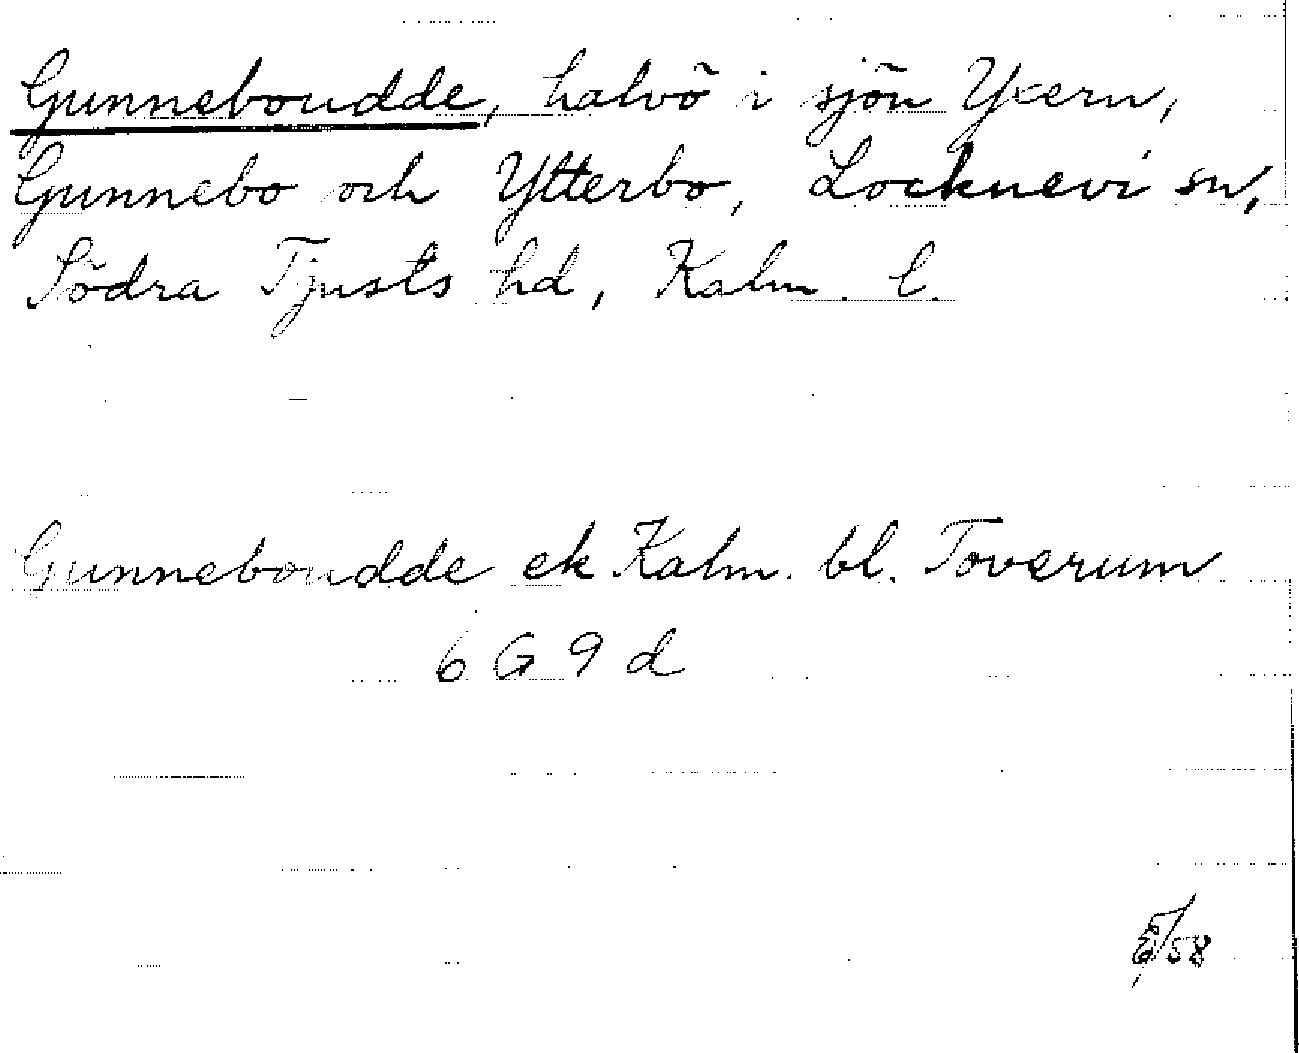 Gunneboudde, halvö i sjön Yxern,
Gunnebo och Ytterbo, Locknevi sn,
Södra Tjusts hd, Kalm. l.
Gunneboudde ek Kalm. bl. Toverum
6 G 9 d
/58